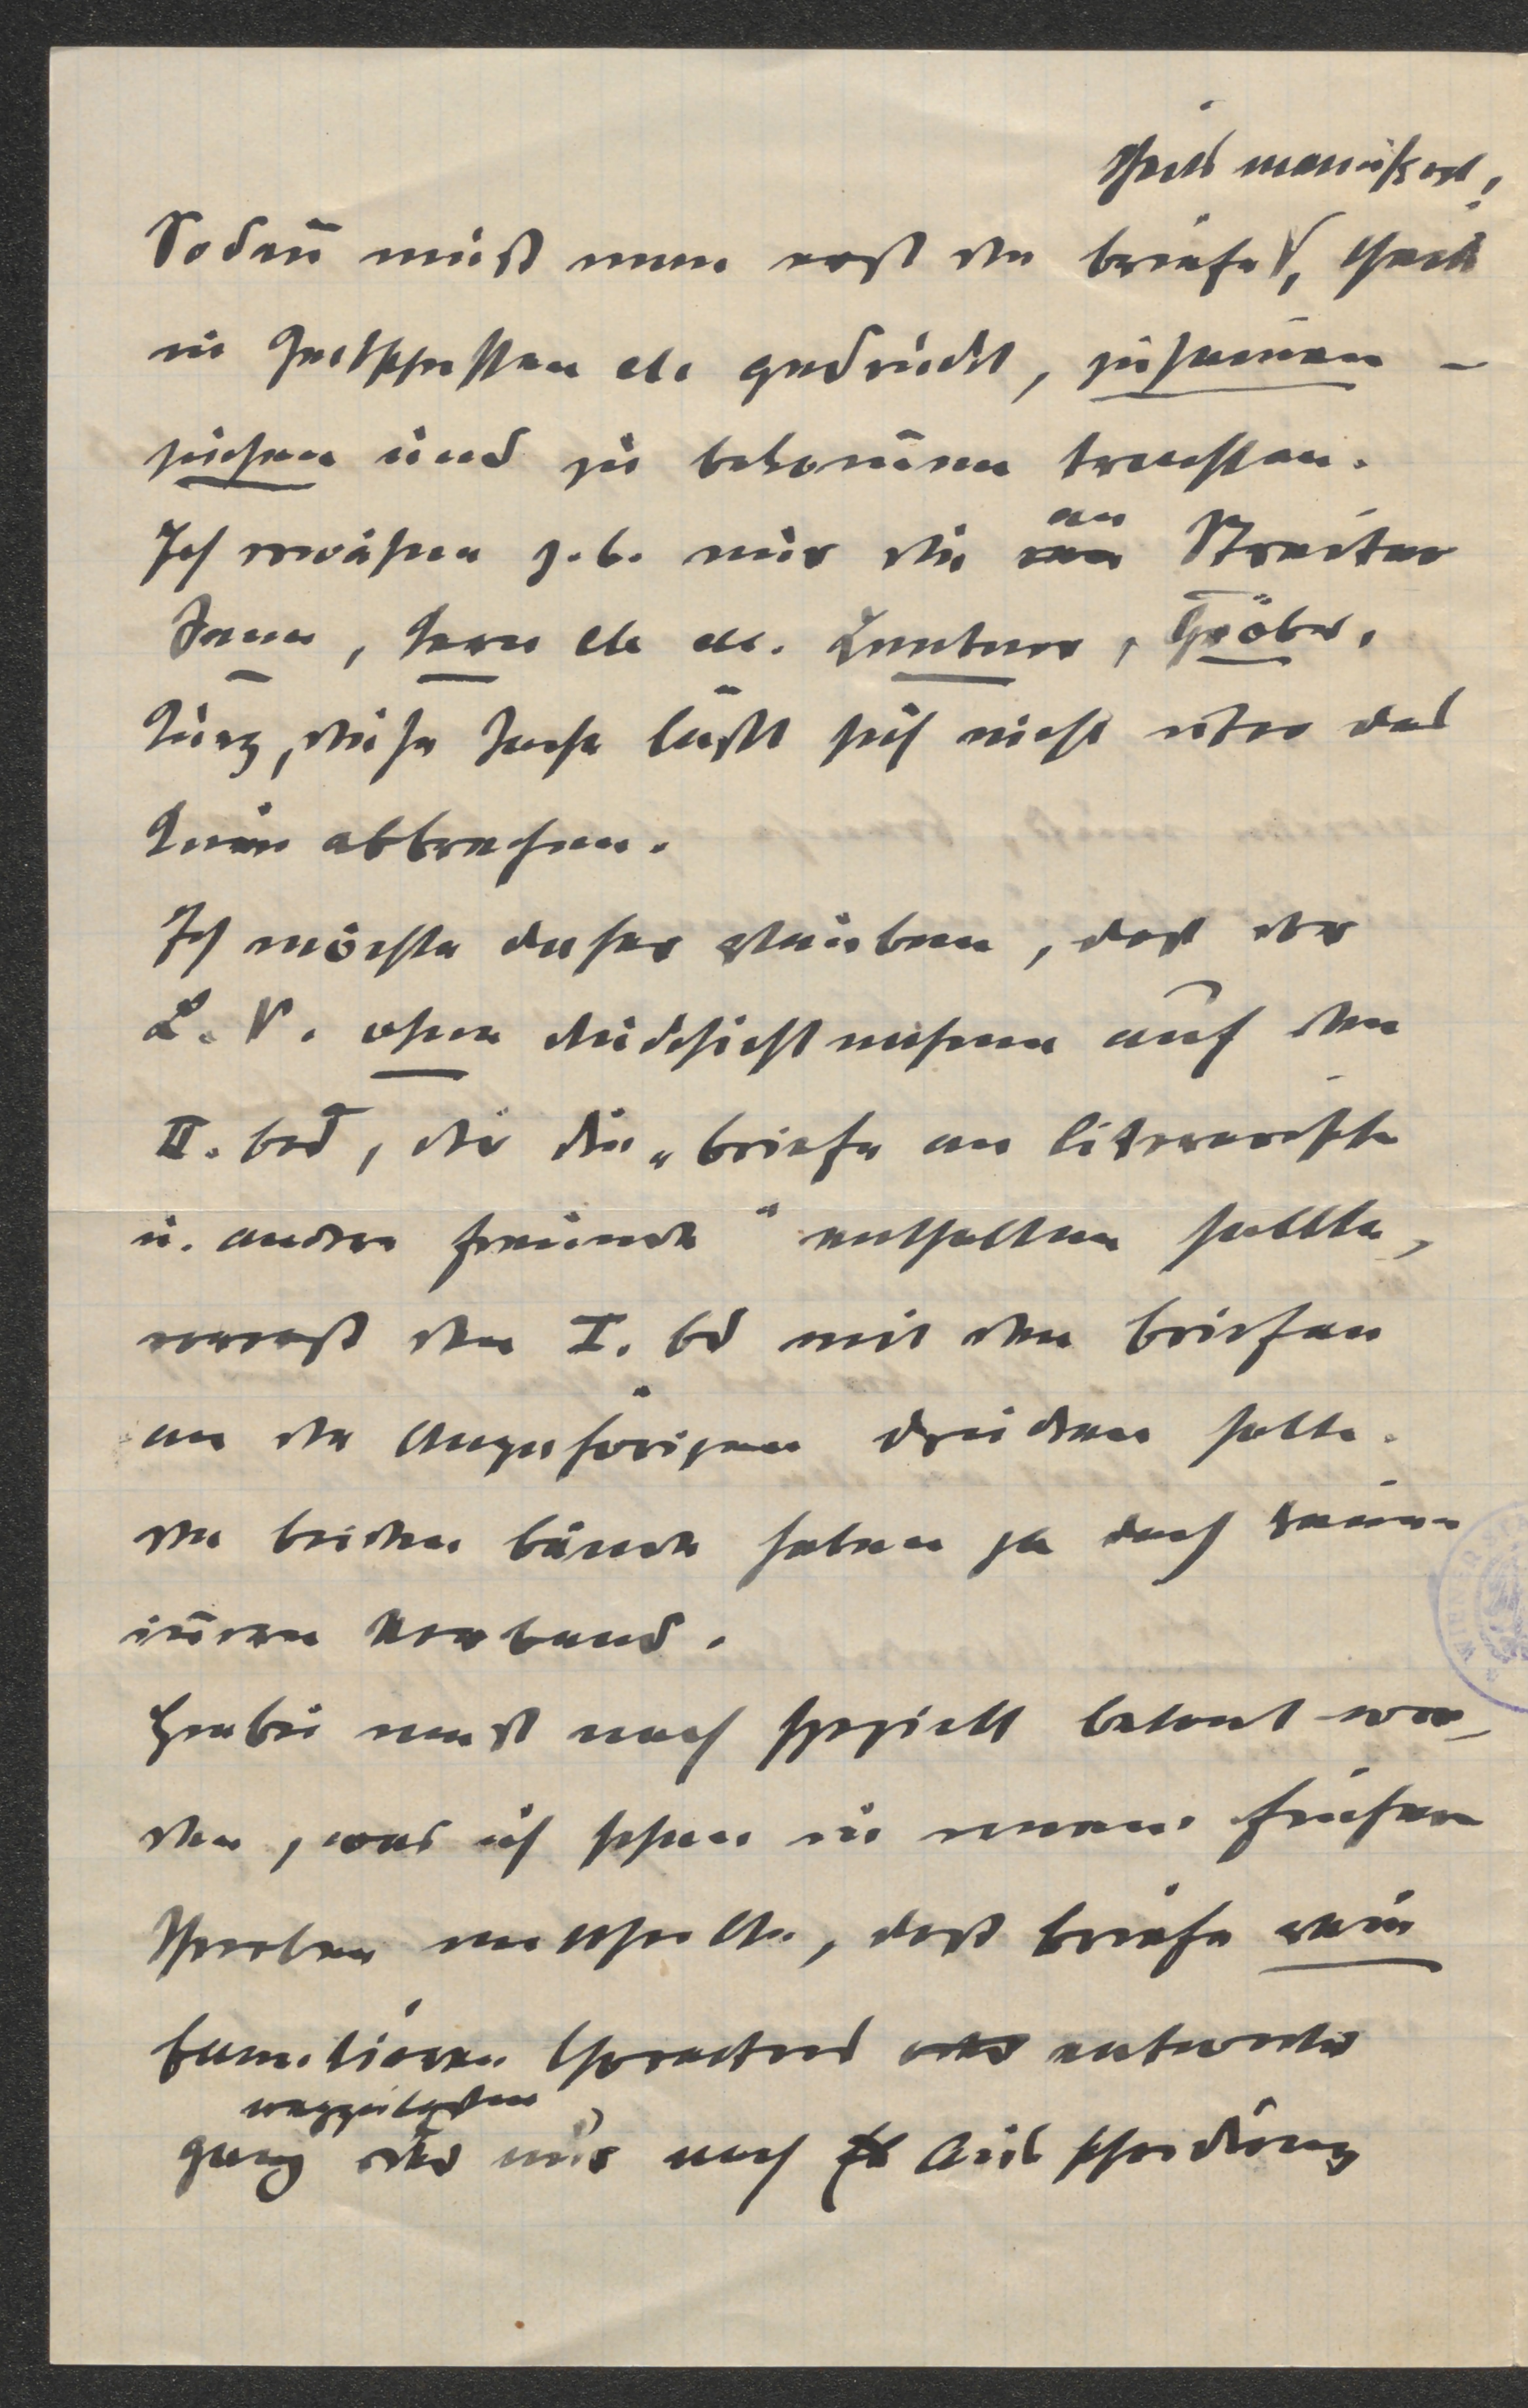 theils manuskript,
Sodann muß man erst die briefe, theils
in Zeitschriften etc gedruckt, zusam̄en-
suchen und zu bekom̄en trachten.
Ich erwähne z. b. nur die an Streiter
, Kern etc etc. Lentner, Gröber.
Kurz, diese Sache läßt sich nicht über das
Knie abbrechen.
Ich möchte daher glauben, daß der
L. V. ohne Rücksichtnahme auf den
II. bd, der die „briefe an literarische
u. andere freunde“ enthalten sollte,
vorerst den I. bd mit den briefen
an die Angehörigen drucken solle.
die beiden bände haben ja doch keinen
in̄eren Verband.
Hierbei muß noch speziell betont wer-
den, was ich schon in meinem früheren
Schreiben mittheilte, daß briefe rein
familiären Charakters entweder
wegzulassen
ganz oder nur nach Ausscheidung